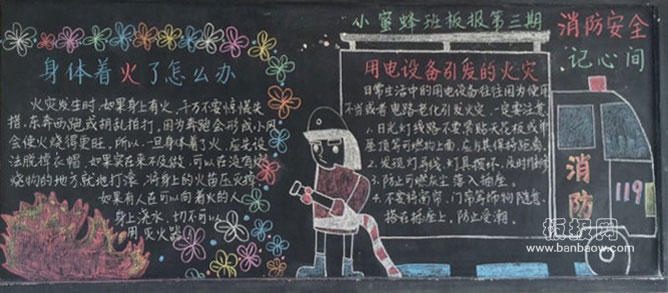 小蜜蜂班板报第三期
消防安全
记心间
身体着火了怎么办
火灾发生时,如果身上有火,千万不要惊慌失
措,东奔西跑或胡乱拍打,因为奔跑会形成小风
会使火烧得更旺。所以,一旦身体着火,应先设
法脱掉衣帽。如果实在来不及做,可以在没有燃
烧物的地方就地打滚,将身上的火苗压灭掉。
如果有人在可以向着火的人
身上浇水,切不可以
用灭火器
用电设备引发的火灾
日常生活中的用电设备往往因为使用
不当或者电路老化引发火灾,一定要注意:
1.日光灯线路不要紧贴天花板或
屋顶等可燃物上面,应与其保持距离。
2.发现灯导线、灯具损坏,及时
3.防止可燃灰尘落入插座。
4.不要将窗帘、门帘等饰物随意
搭在插座上,防止受潮。
消
防
119
板报网
www.banbaow.com